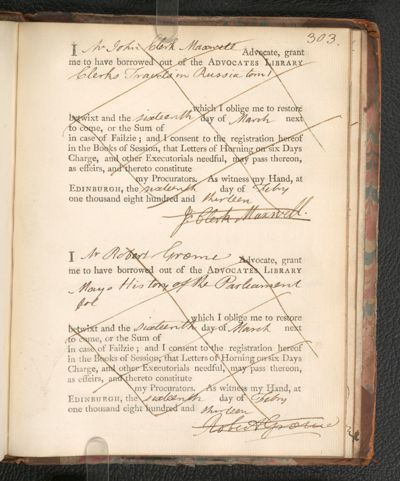 303.
I Mr John Clerk Maxwell Advocate, grant
me to have borrowed out of the ADVOCATES LIBRARY
Clerks Travels in Russia tom 1
which I oblige me to restore
betwixt and the sixteenth day of March next
to come, or the Sum of
in case of Failzie; and I consent to the registration hereof
in the Books of Session, that Letters of Horning on six Days
Charge, and other Executorials needful, may pass thereon,
as effeirs, and thereto constitute
my Procurators. As witness my Hand, at
EDINBURGH, the sixteenth day of Feby
one thousand eight hundred and thirteen
J. Clerk Maxwell.
I Mr Robert Græme Advocate, grant
me to have borrowed out of the ADVOCATES LIBRARY
Mays History of the Parliament
which I oblige me to restore
betwixt and the sixteenth day of March next
to come, or the Sum of
in case of Failzie; and I consent to the registration hereof
in the Books of Session, that Letters of Horning on six Days
Charge, and other Executorials needful, may pass thereon,
as effeirs, and thereto constitute
my Procurators. As witness my Hand, at
EDINBURGH, the sixteenth day of Feby
one thousand eight hundred and thirteen
Robert Græme